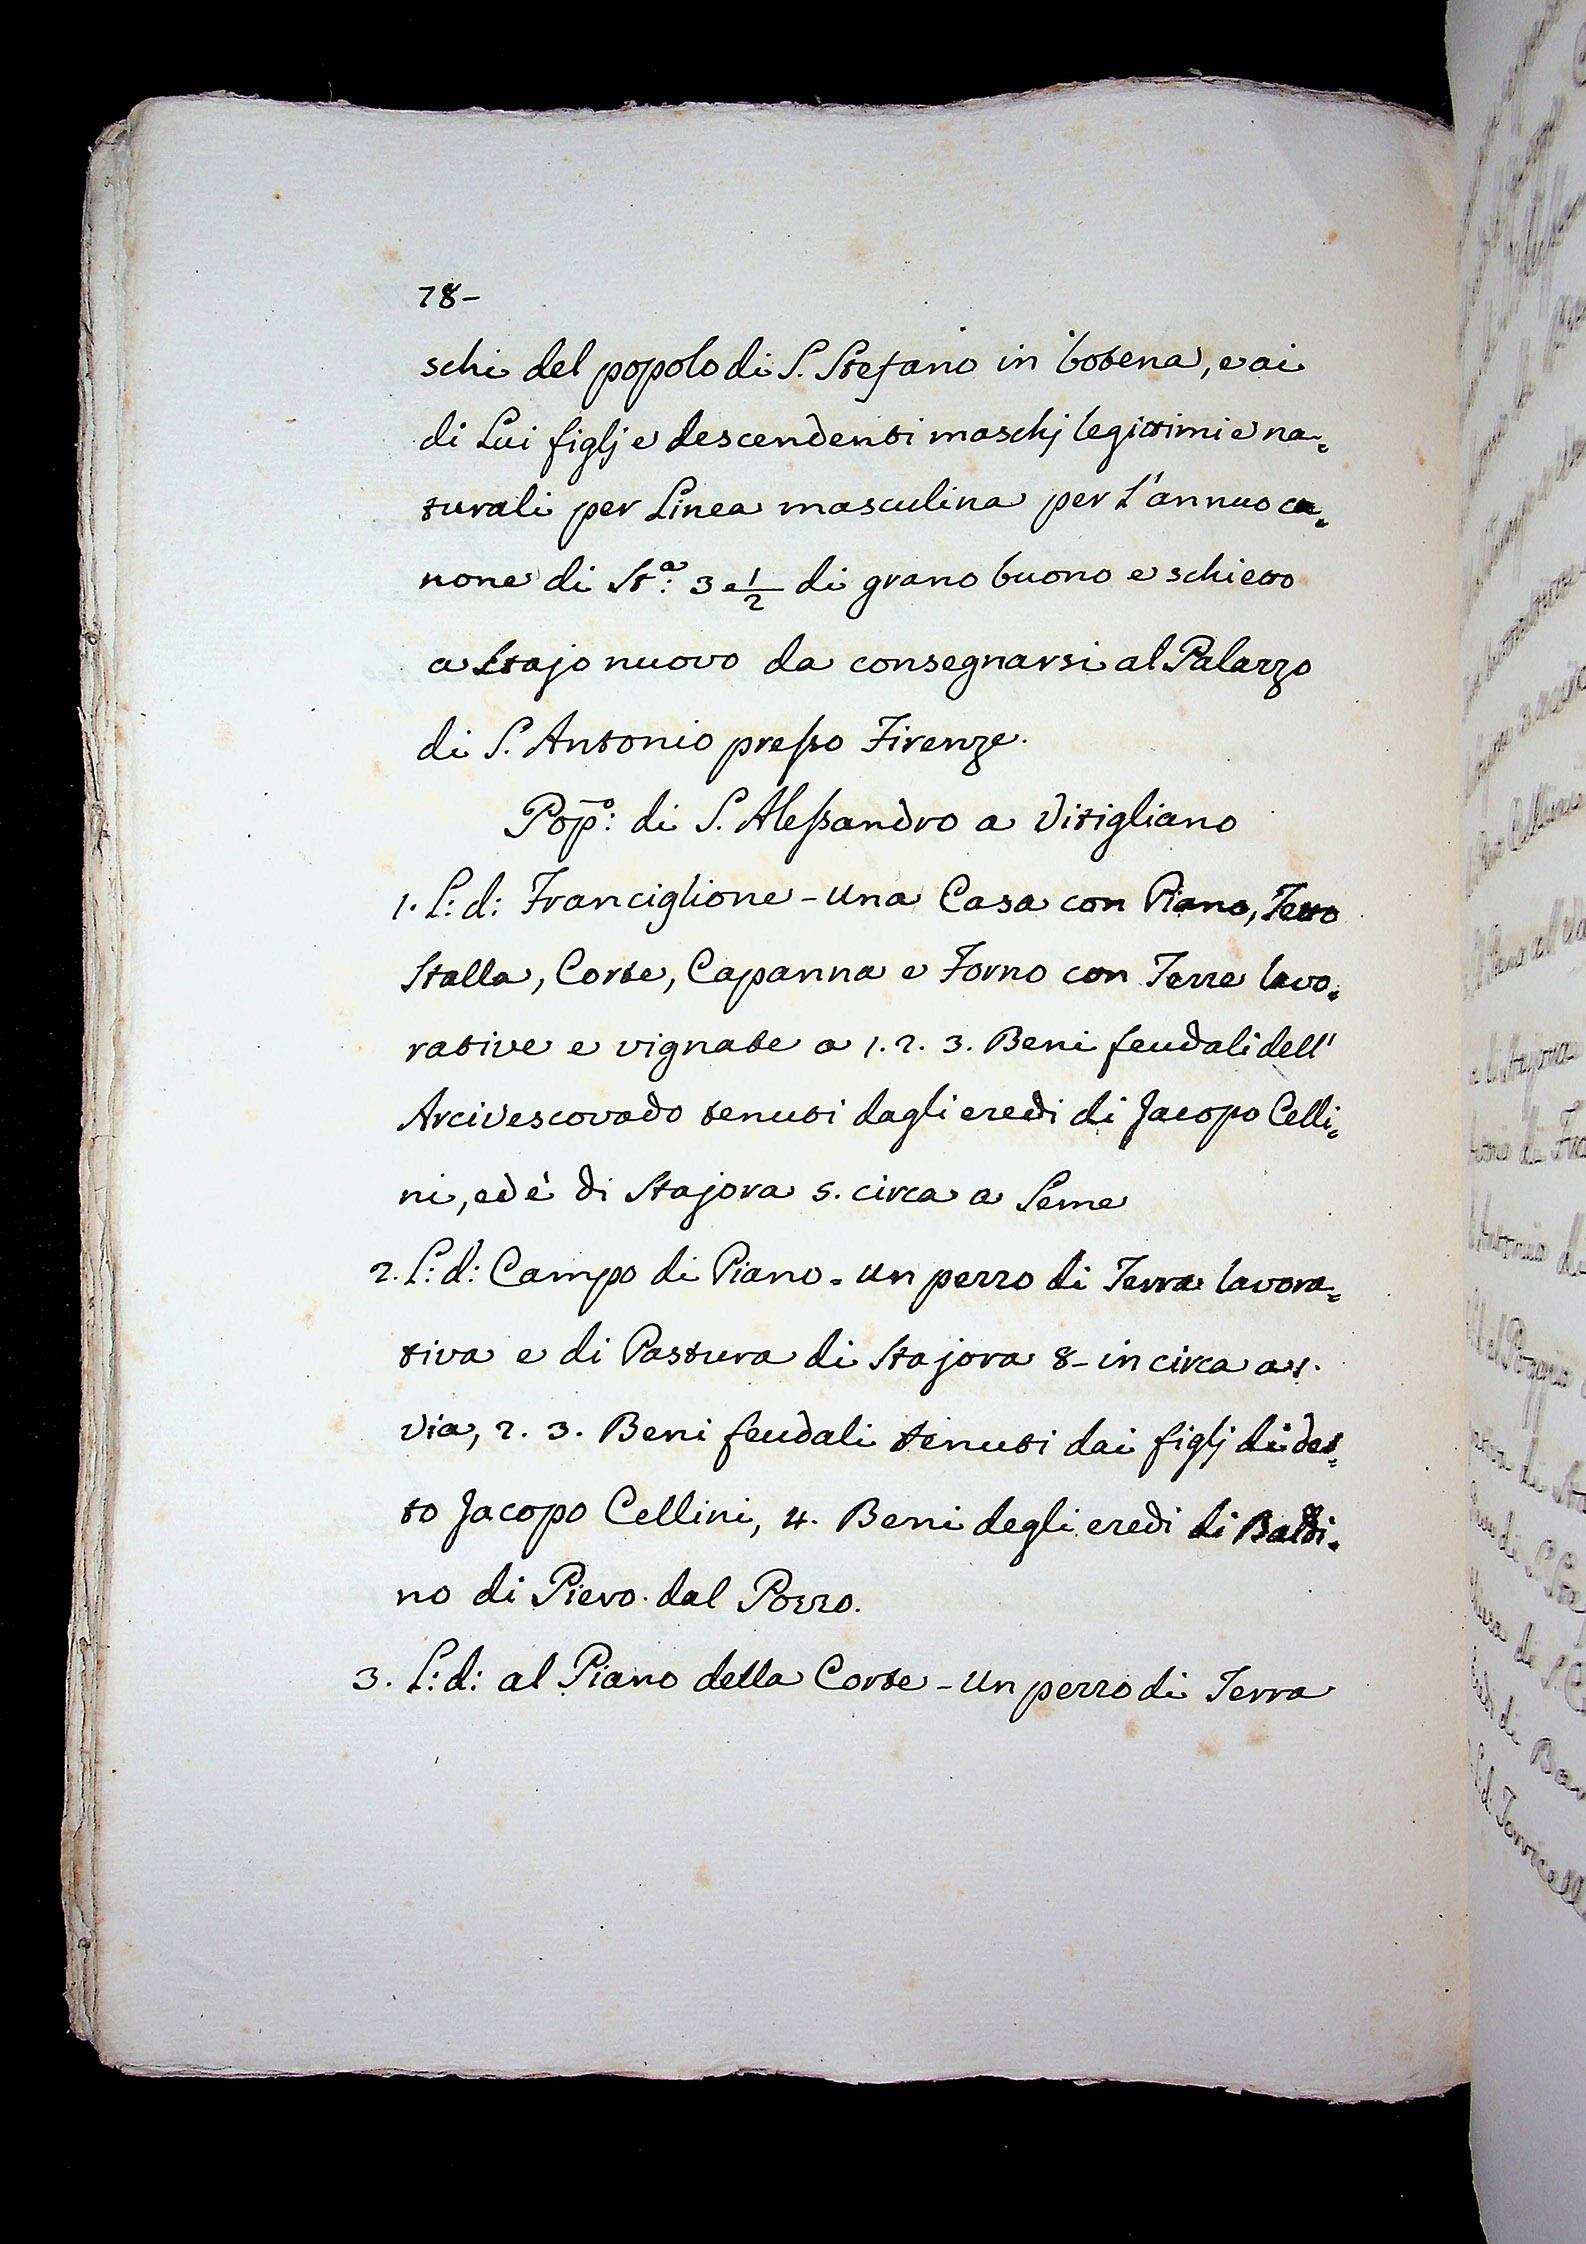 78-
schi del popolo di S. Stefano in botena, e ai
di Lui figlj e descendenti maschj legittimi e na=
turali per Linea masculina per l'annuo ca=
none di Stª: 3 e 1/2 di grano buono e schietto
a Stajo nuovo da consegnarsi al Palazzo
di S. Antonio presso Firenze.
Pop̄º: di S. Alessandro a Vitigliano
1. L: d: Franciglione - Una Casa con Piano, Tetto
Stalla, Corte, Capanna e Forno con Terre lavo=
rative e vignate a 1. 2. 3. Beni feudali dell'
Arcivescovado tenuti dagli eredi di Jacopo Celli=
ni, ed è di Stajora 5. circa a Seme
2. L: d: Campo di Piano - Un pezzo di Terra lavora=
tiva e di Pastura di Stajora 8- in circa a 1.
via, 2. 3. Beni feudali tenuti dai figlj di det=
to Jacopo Cellini, 4. Beni degli eredi di Baldi=
no di Piero dal Pozzo.
3. L: d: al Piano della Corte - Un pezzo di Terra